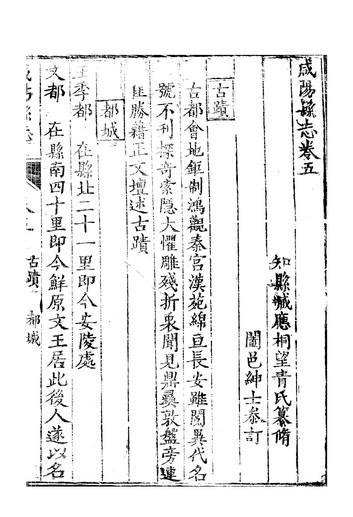 咸陽縣志卷五
知縣臧應桐望青氏纂脩
闔邑紳士叅訂
古蹟
古都會地鉅制鴻觀秦宮漢苑綿亘長安雖閱異代名
號不刋探竒索隱大懼雕殘折衆聞見鼎彞敦盤旁連
匪勝籍正文壇述古蹟
都城
王季都 在縣北二十一里即今安陵處
文都 在縣南四十里即今鮮原文王居此後人遂以名
咸陽縣志
古蹟 都城